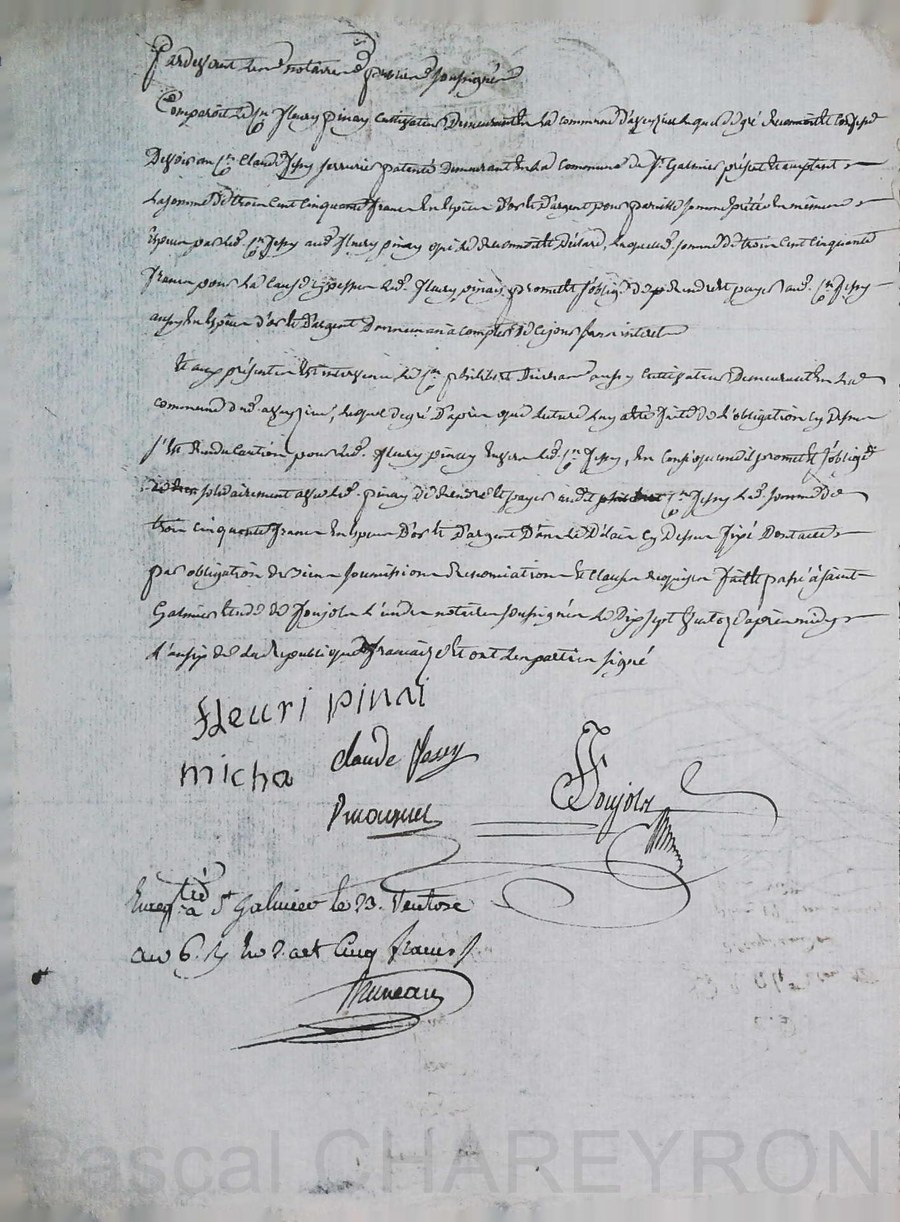 Pardevant les notaires publics soussignés
Comparoit le cn fleury pinay cultivateur Demeurant en la commune d'aveyzieu lequel de gré reconnoit et confesse
Devoir au cn Claude Jessy serrurier patenté Demeurant en la Commune de St Galmier présent et acceptant
La somme de trois cent cinquante francs en espèces D'or et D'argent pour pareille somme prêtée en mêmes
Espèces par led. cn Jessy aud. fleury pinay qui le reconnoit et Déclare, laquelle somme de trois cent cinquante
francs pour la cause cy dessus led. fleury pinay promet et s'oblige de rendre et payer aud. cn Jessy
aussy en espèces d'or et D'argent Dans un an à compter de ce jour sans interet
Et aux présentes est intervenu le cn aussy Cultivateur Demeurant en lade
commune d' aveyzieu, lequel de gré D'après que lecture luy a été faite de l'obligation cy Dessus
s'est Rendu Caution pour led. fleury pinay Envers led. cn Jessy, En Conséquence il promet et s'oblige
solidairement avec led. pinay de rendre et payer audit cn Jessy lad. somme de
trois cinquante francs En Espèces D'or et D'argent Dans le Délai cy Dessus fixé Dont acte
par obligation de biens soumissions Renonciations et Clauses requises fait et passé à saint
Galmier Etude de Poujola l'un des notaires soussignés le Dix sept Ventoz après midy
l'an six de la Republique française et ont les parties signé
fleuri pinai
micha claude Jessy
Poujola
Enregtré à St Galmier le 23. Ventose
an 6. cinq francs
Bruneau
Pascal CHAREYRON